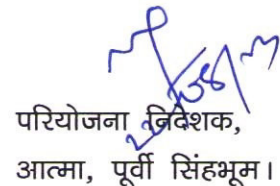 परियोजना निदेशक,
आत्मा, पूर्वी सिंहभूम।